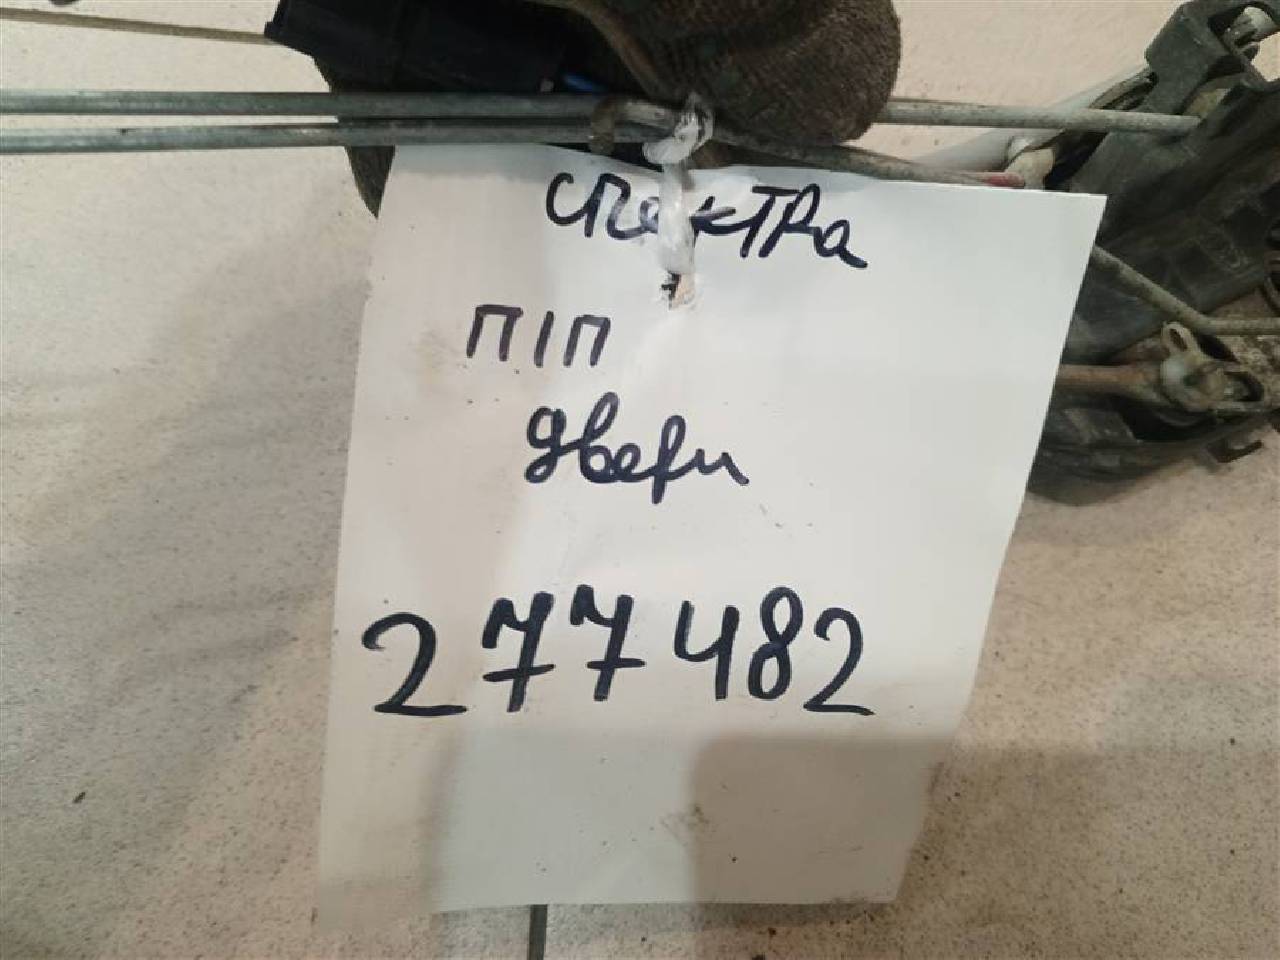 спектра
П/П
двери
277482